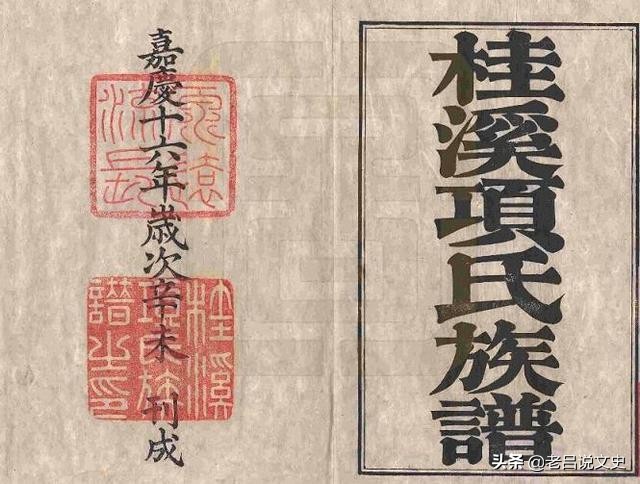 桂溪項氏族譜
嘉慶十六年嵗次辛未 刊成
源遠
流長
桂溪
項氏族
譜之印
头条 @老吕说文史